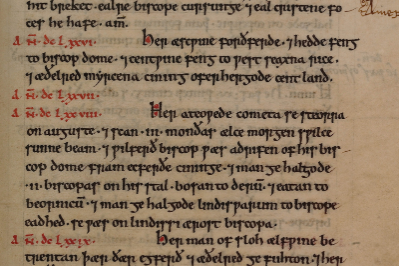 int brekeð. ealre biscope cursunge ⁊ eal cristene fo
ces he hafe. am̄.
A N̄. dc lxxvi. Her æscƿine forðferde. ⁊ hedde feng
to biscop dome. ⁊ centƿine feng to ƿest seaxna rice.
⁊ æðelred myrcena cining oferhergode cent land.
A N̄. dc lxxvii.
A N̄. dc lxxviii. Her ateoƿede cometa se steorra
on auguste. ⁊ scan .iii. monðas ælce morgen sƿilce
sunne beam. ⁊ ƿilferð biscop ƿæs adrifen of his bis
cop dome fram ecferðe cininge. ⁊ man gehalgode
.ii. biscopas on his stal. bosan to derū. ⁊ eatan to
beornicū ⁊ man gehalgode lindisƿarum to biscope
eadhed. se ƿæs on lindissi ærost biscopa.
A N̄. dc lxxix. Her man ofsloh ælfƿine be
trentan þær ðær egferð ⁊ æðelred gefuhton. ⁊ her